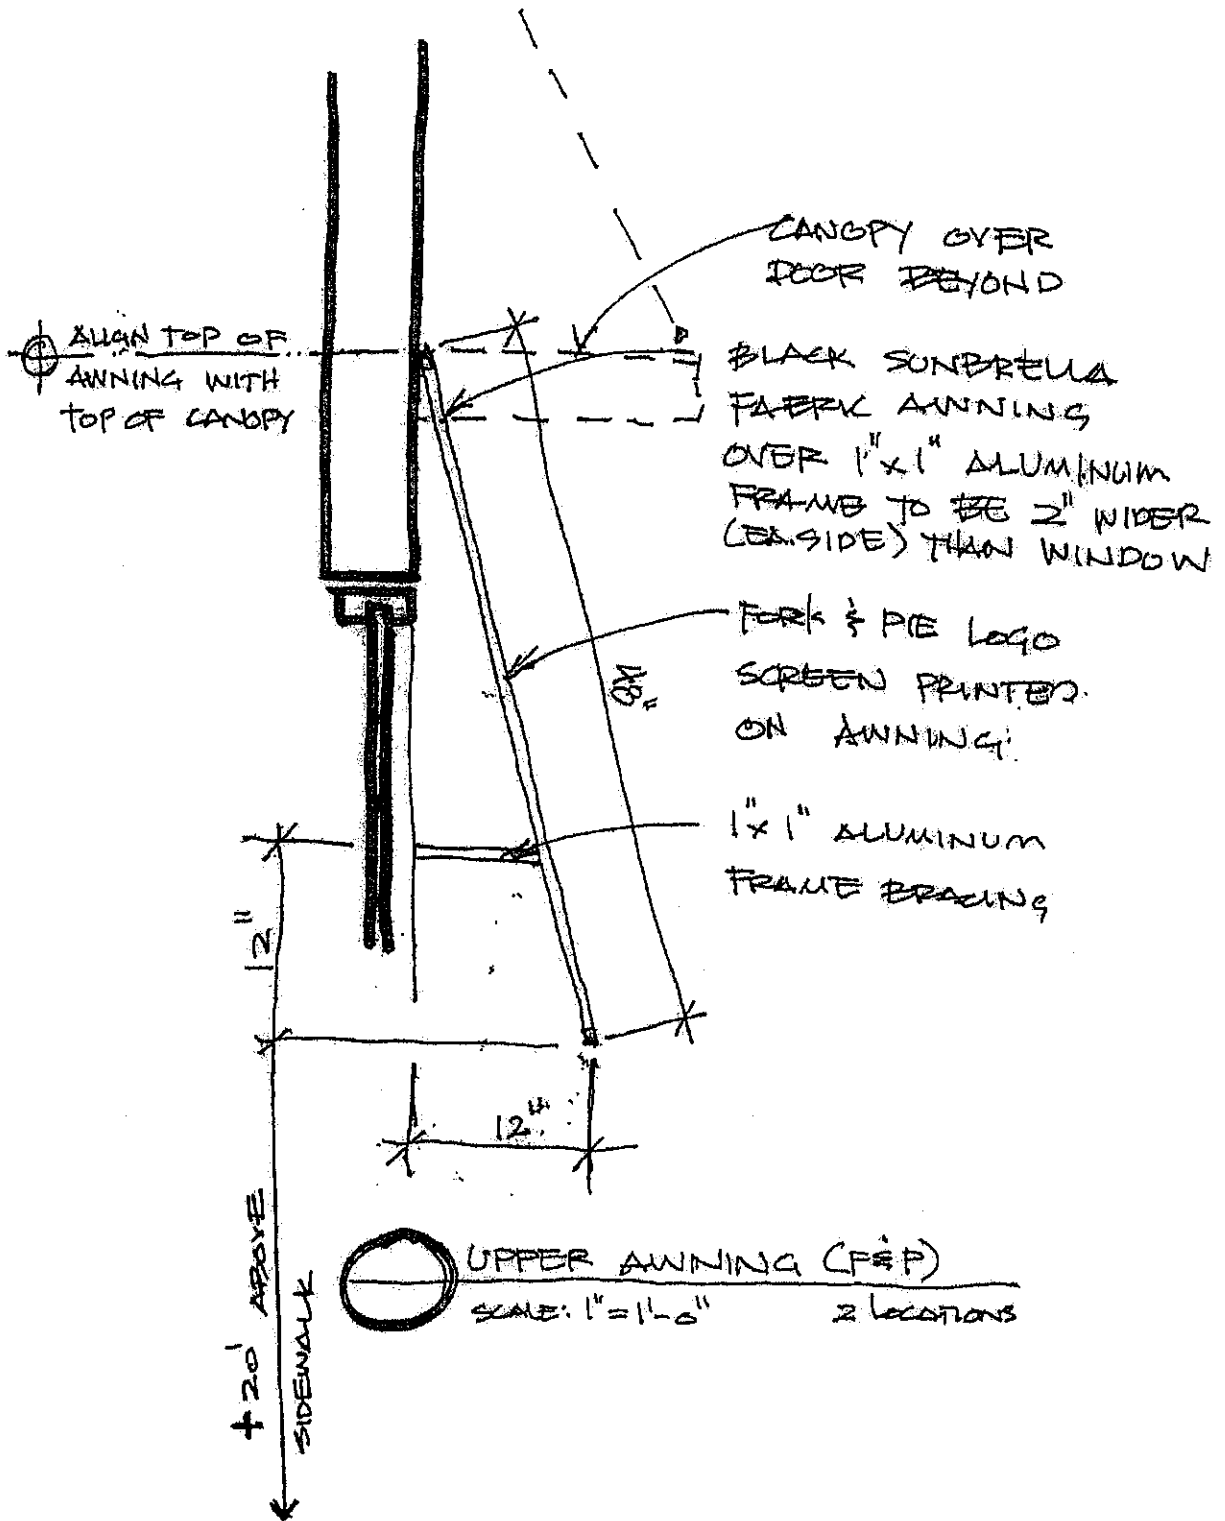 CANOPY OVER
DOOR BEYOND
ALIGN TOP OF
AWNING WITH
TOP OF CANOPY
BLACK SUNBRELLA
FABRIC AWNING
OVER 1"x1" ALUMINUM
FRAME TO BE 2" WIDER
(EA.SIDE) THAN WINDOW
FORK & PIE LOGO
SCREEN PRINTED
ON AWNING.
48"
1"x1" ALUMINUM
FRAME BRACING
12"
12"
+20' ABOVE
SIDEWALK
UPPER AWNING (F&P)
SCALE: 1"=1'-0" 2 LOCATIONS